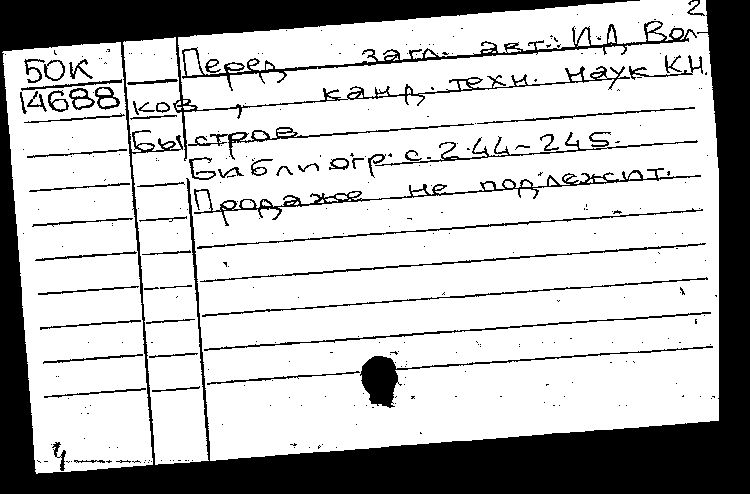 2
50К Перед загл. авт.: И.Д. Вол-
14688 ков, канд. техн. наук К.Н.
Быстров
Библиогр: с. 244-245.
Продаже не подлежит.
4